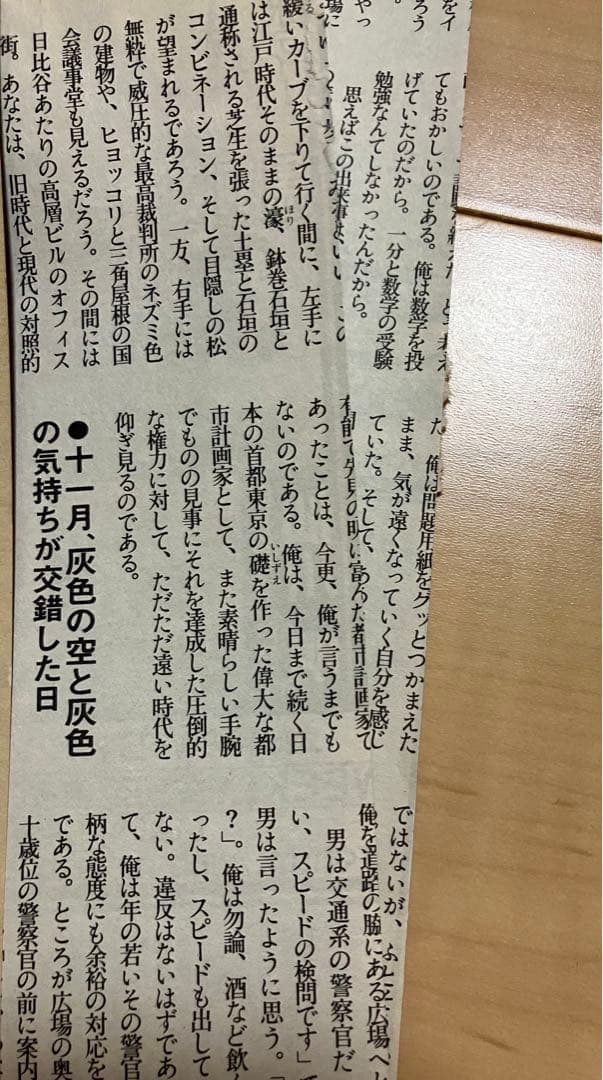 てもおかしいのである。俺は数学を投
げていたのだから。一分と数学の受験
勉強なんてしなかったんだから。
思えばこの出来事
緩いカーブを下りて行く間に、左手に
は江戸時代そのままの濠、鉢巻石垣と
通称される芝生を張った土塁と石垣の
コンビネーション、そして目隠しの松
が望まれるであろう。一方、右手には
無粋で威圧的な最高裁判所のネズミ色
の建物や、ヒョッコリと三角屋根の国
会議事堂も見えるだろう。その間には
日比谷あたりの高層ビルのオフィス
街。あなたは、旧時代と現代の対照的
た。俺は問題用紙をグッとつかまえた
まま、気が遠くなっていく自分を感じ
ていた。そして、
あったことは、今更、俺が言うまでも
ないのである。俺は、今日まで続く日
本の首都東京の礎を作った偉大な都
市計画家として、また素晴らしい手腕
でものの見事にそれを達成した圧倒的
な権力に対して、ただただ遠い時代を
仰ぎ見るのである。
●十一月、灰色の空と灰色
の気持ちが交錯した日
ではないが、
俺を道路の脇にある広場へと
男は交通系の警察官だ
い、スピードの検問です」
男は言ったように思う。「
?」。俺は勿論、酒など飲
ったし、スピードも出して
ない。違反はないはずであ
て、俺は年の若いその警官
柄な態度にも余裕の対応を
である。ところが広場の奥
十歳位の警察官の前に案内